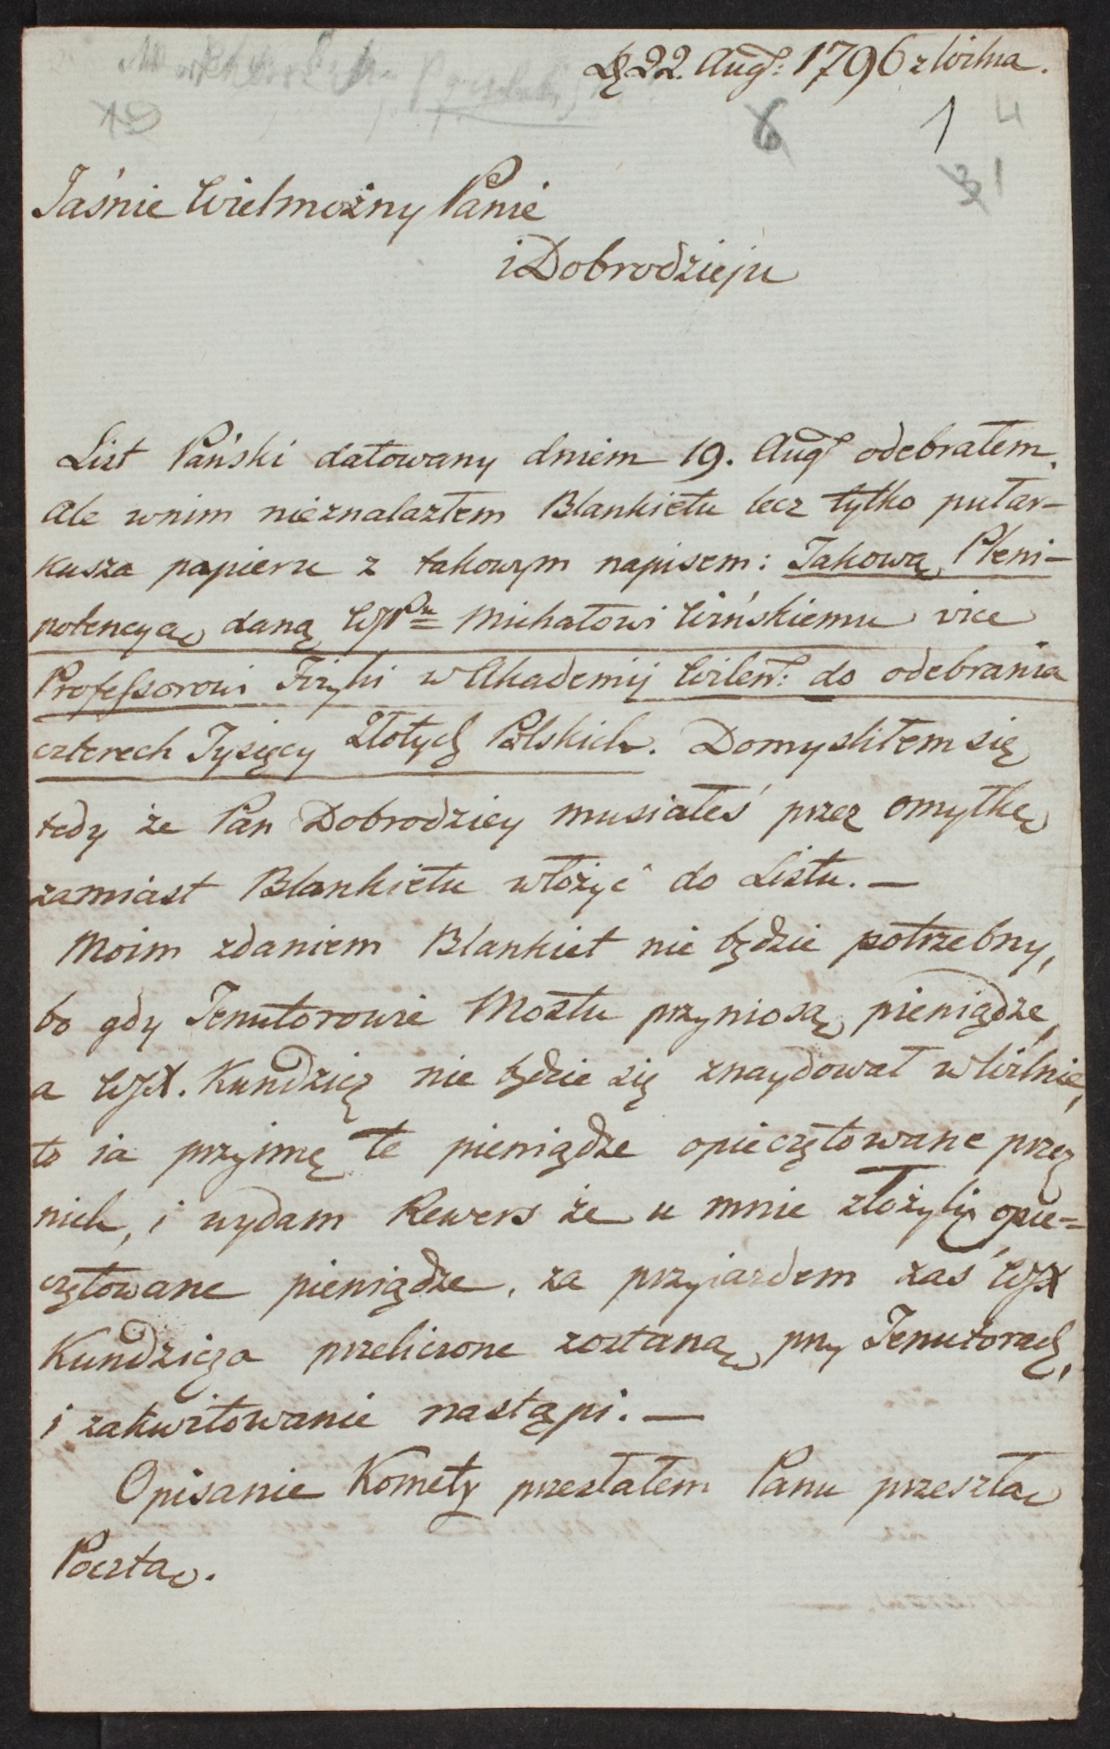 D. 22. Aug: 1796 z Wilna.
6 1 4
31
Jaśnie Wielmożny Panie
i Dobrodzieju
List Pański datowany dniem 19. Aug odebrałem.
Ale wnim nieznalazłem Blankietu lecz tylko pułar-
kusza papieru z takowym napisem: Jakową Pleni-
potencyą daną WJPu Michałowi Wińskiemu vice
Professorowi Fizyki w Akademij Wileń: do odebrania
czterech Tysięcy Złotych Polskich. Domyśliłem się
tedy że Pan Dobrodziey musiałeś przez omyłkę
zamiast Blankietu włożyć do Listu. —
Moim zdaniem Blankiet nie będzie potrzebny,
bo gdy Tenutorowie Mostu przyniosą pieniądze,
a WJX. Kundzicz nie będzie się znaydował w Wilnie,
to ia przyimę te pieniądze opieczętowane przez
nich, i wydam Rewers że u mnie złożyli opie=
czętowane pieniądze, za przyiazdem zaś WJX
Kundzicza przeliczone zostaną przy Tenutorach,
i zakwitowanie nastąpi. —
Opisanie Komety przesłałem Panu przeszłą
Pocztą.